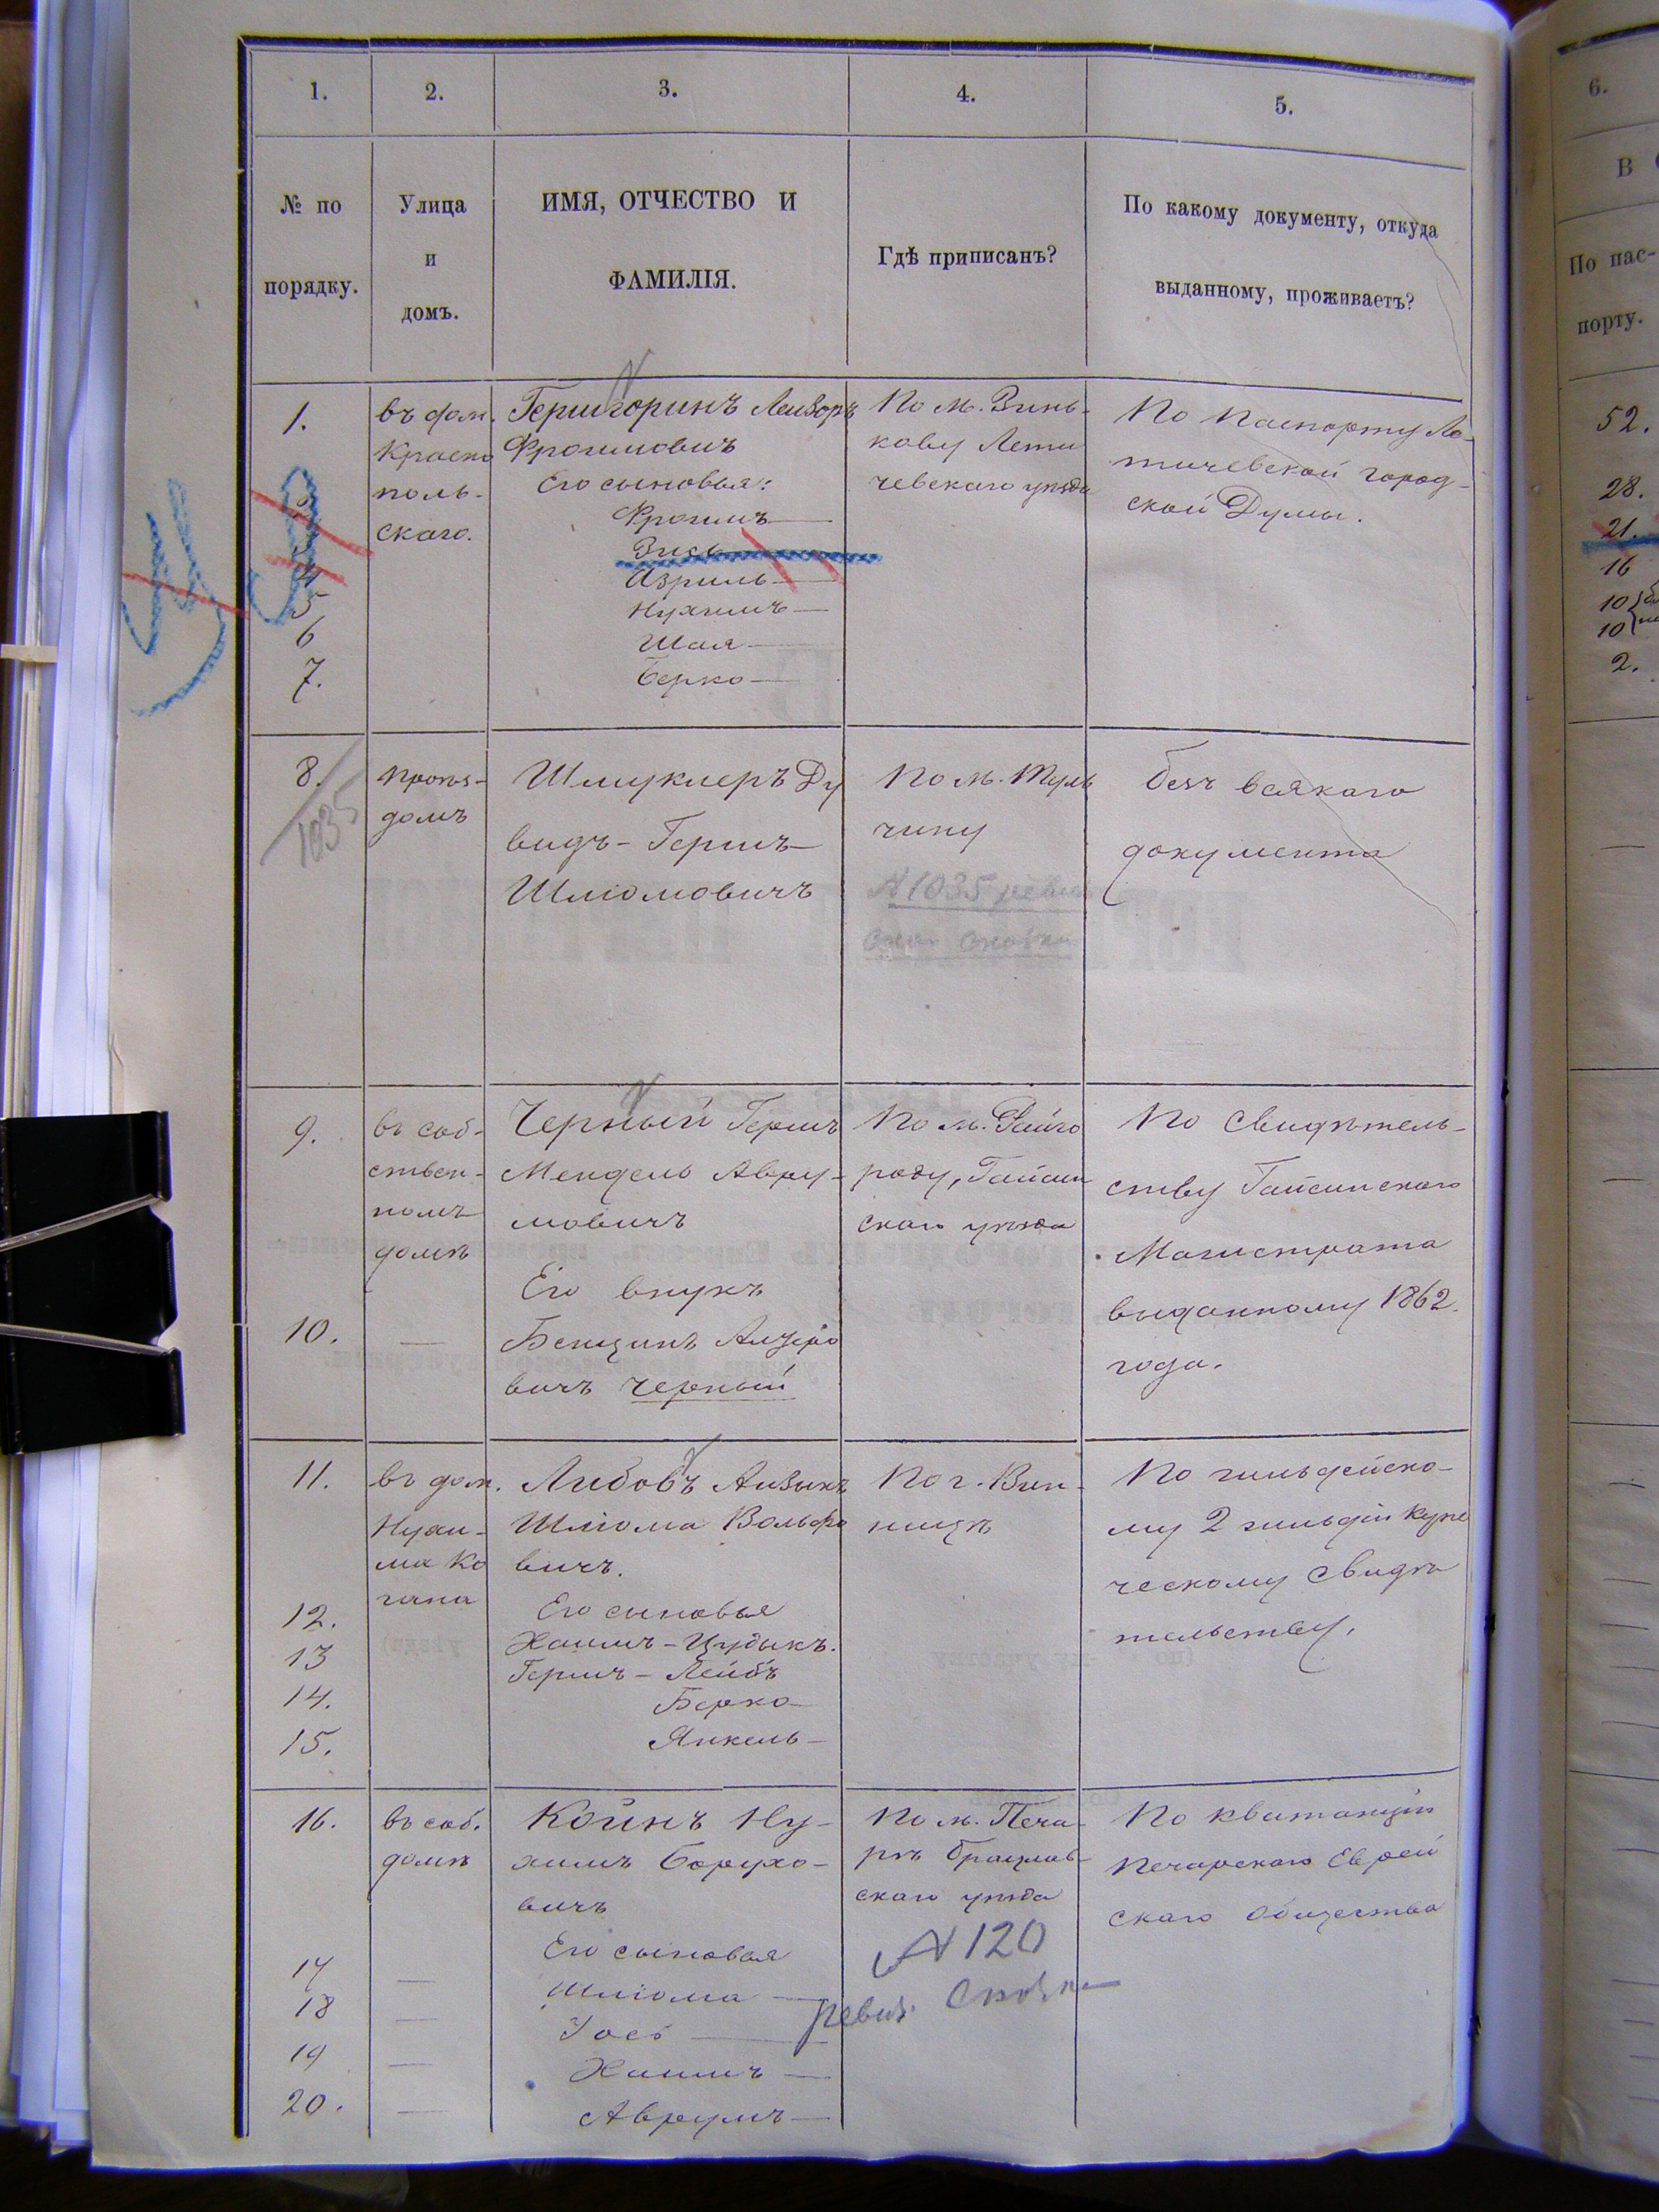 1.
2.
3.
4.
5.
6.
№ по
порядку.
Улица
и
домъ.
ИМЯ, ОТЧЕСТВО И
ФАМИЛІЯ.
Гдѣ приписанъ?
По какому документу, откуда
выданному, проживаетъ?
В
По пас-
порту.
1.
въ дом.
Краено
поль-
скаго.
Гершгоринъ Лейзоръ
Фроимовичъ
Его сыновья:
Фроимъ
Зись
Азриль
Нухимъ
Шая
Берко
4
5
6
7.
По м. Зинь-
кову Лети
чевскаго уѣзда
По паспорту Ле-
тичевской город-
ской Думы.
52.
28.
21.
16
10
10
2.
8.
1035
проѣз-
домъ
Шмуклеръ Ду
видъ-Гершъ
Шліомовичъ
По м. Туль
чину
№ 1035 ревиз
ской сказки
безъ всякаго
документа
9.
въ соб-
ствен-
номъ
домѣ
Черный Гершъ
Мендель Авру-
мовичъ
Его внукъ
10.
Бенционъ Лузеро
вичъ Черный
По м. Райго
роду, Гайсин
скаго уѣзда
По свидѣтель-
ству Гайсинскаго
Магистрата
выданному 1862.
года.
11.
въ дом.
Нухи-
ма Ко
гана
Либовъ Айзыкъ
Шліома Вольфо
вичъ.
Его сыновья
12.
Хаимъ-Цудыкъ.
13
Гершъ-Лейбъ
14.
Берко
15.
Янкель
По г. Вин-
ницѣ
По гильдейско-
му 2 гильдіи купе
ческому свидѣ
тельству.
16.
въ соб.
домѣ
Койнъ Ну-
химъ Борухо-
вичъ
Его сыновья
17
Шліома
18
Іось
19
Хаимъ
20.
Аврумъ
По м. Печа-
рѣ Брацлав-
скаго уѣзда
№ 120
ревиз. сказки
По квитанціи
Печарскаго Еврей
скаго общества